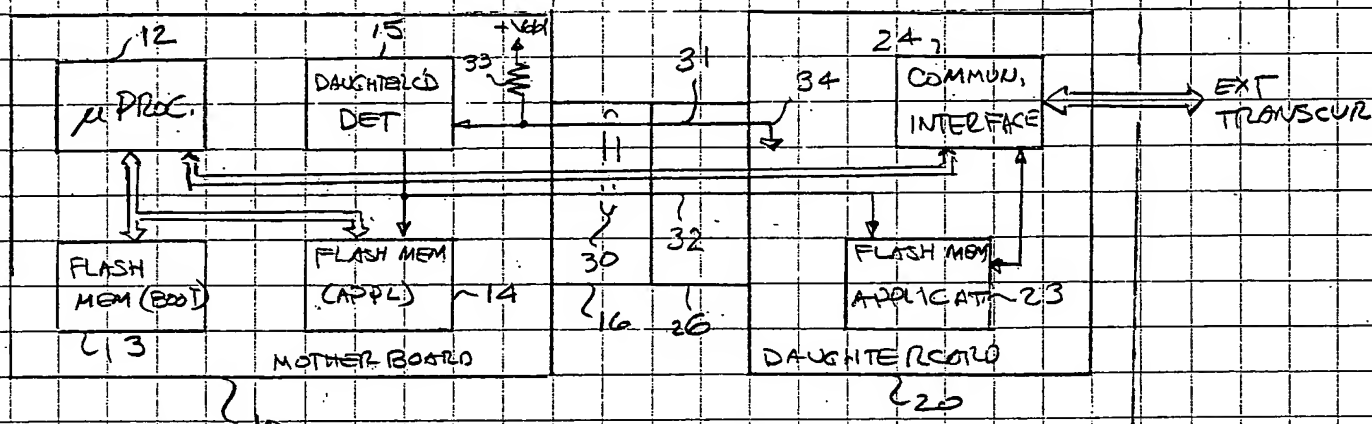 12
μ PROC.
15
DAUGHTERC'D
DET
+Vdd
33
31
34
24
COMMUN.
INTERFACE
EXT
TRANSCUR
FLASH
MEM (BOOT)
13
FLASH MEM
(APPL)
14
30
16
32
26
FLASH MEM
APPLICAT
23
MOTHER BOARD
DAUGHTERCARD
20